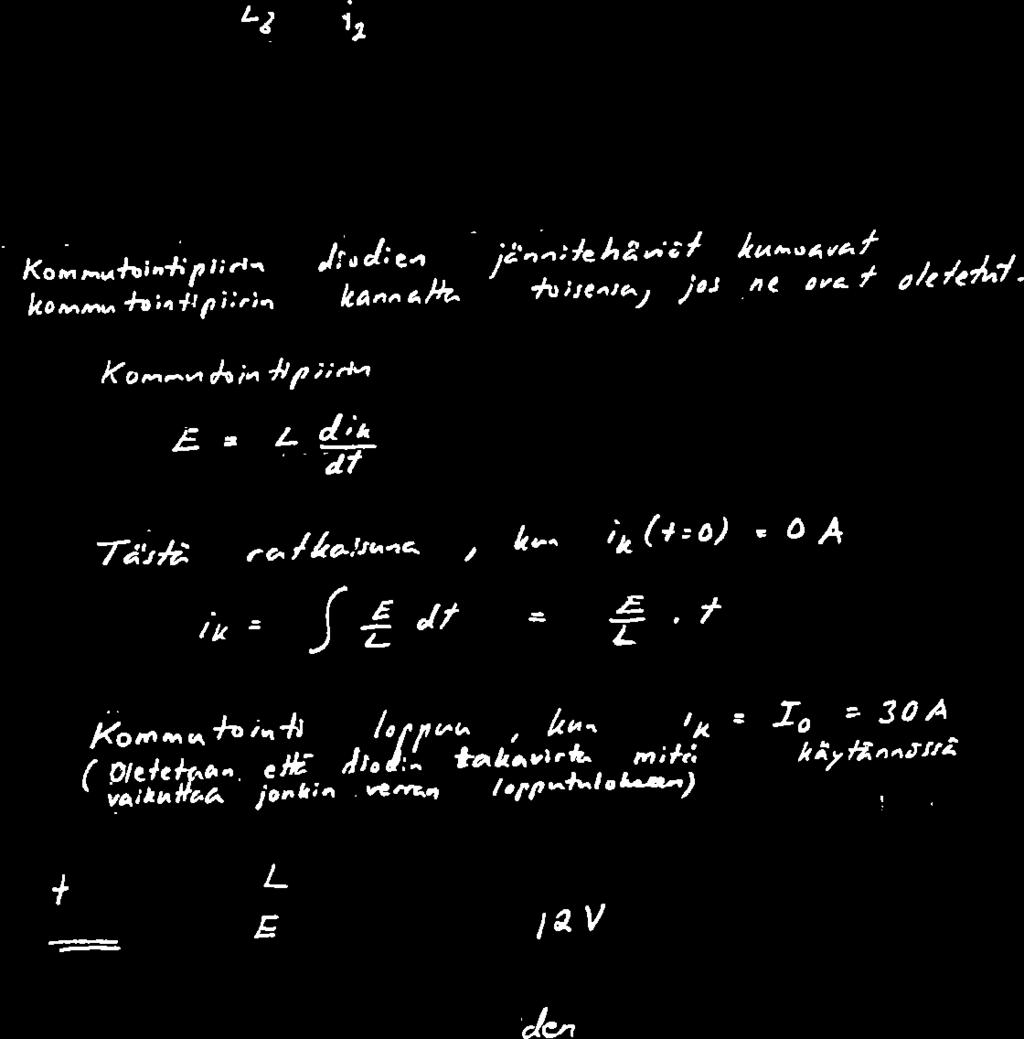 L3 i2
Kommutointipiirin diodien jännitehäviöt kumoavat
kommutointipiirin kannalta toisensa, jos ne ovat oletetut.
Kommutointipiirin
E = L dik/dt
Tästä ratkaisuna, kun ik (t=0) = 0 A
ik = ∫ E/L dt = E/L · t
Kommutointi loppuu, kun ik = I0 = 30 A
(Oletetaan, että diodin takavirta mitä käytännössä
vaikuttaa jonkin verran lopputulokseen)
t L
E 12 V
den